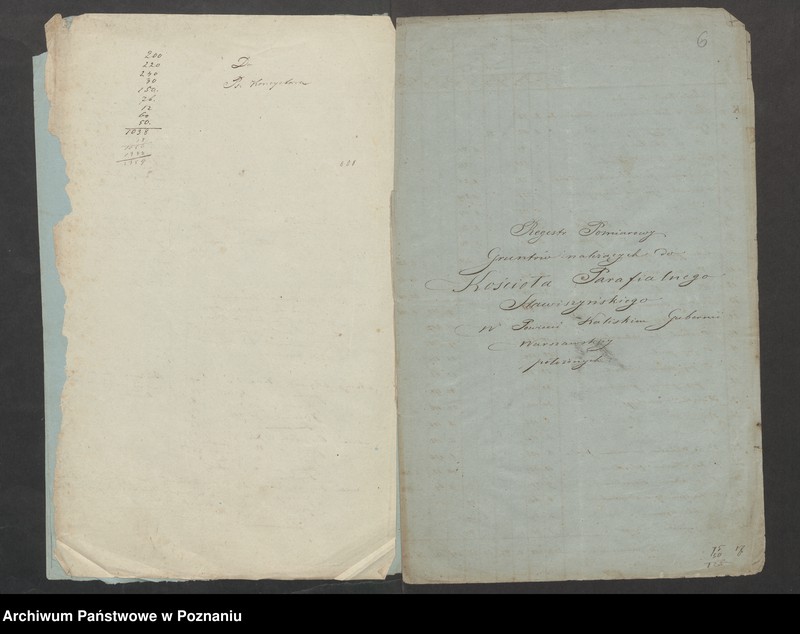 200
220
240
30
150.
76.
12
60
50.
1038
Do
131
6
Regestr Pomiarowy
Gruntów należących do
Kościoła Parafialnego
Stawiszyńskiego
W Powiecie Kaliskim Gubernii
Warszawskiej
położonych
Archiwum Państwowe w Poznaniu